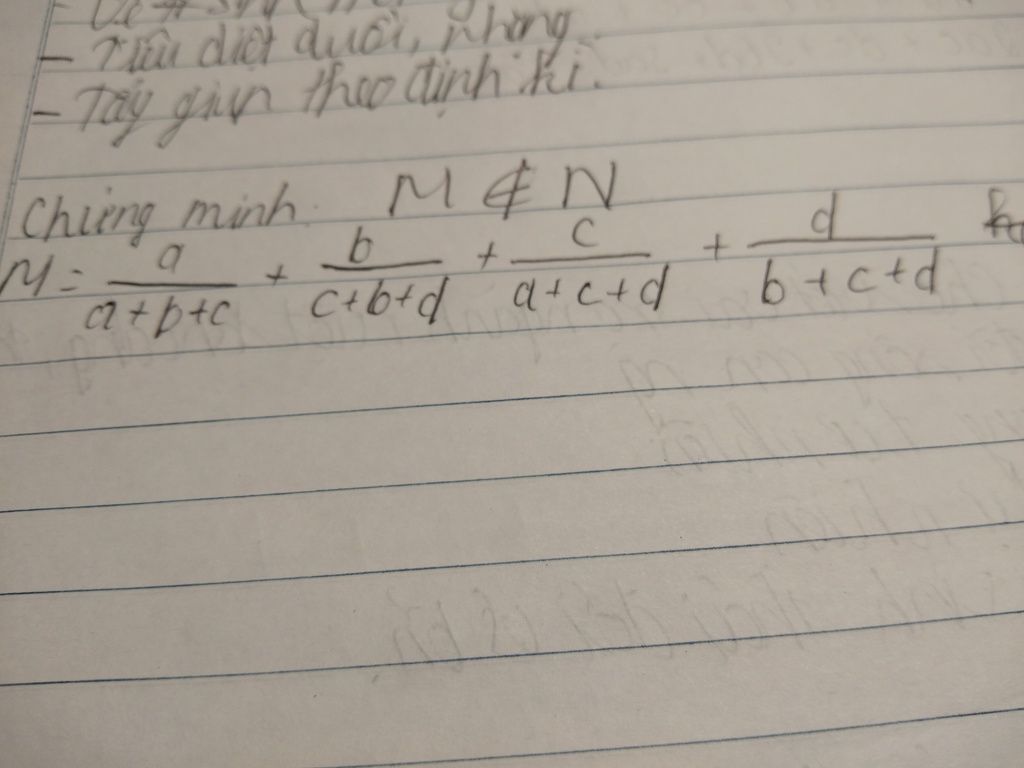 - Tiêu diệt duỗi, nhộng
- Tẩy giun theo định kì.
Chứng minh. M ∉ N
M = a/(a+b+c) + b/(c+b+d) + c/(a+c+d) + d/(b+c+d)